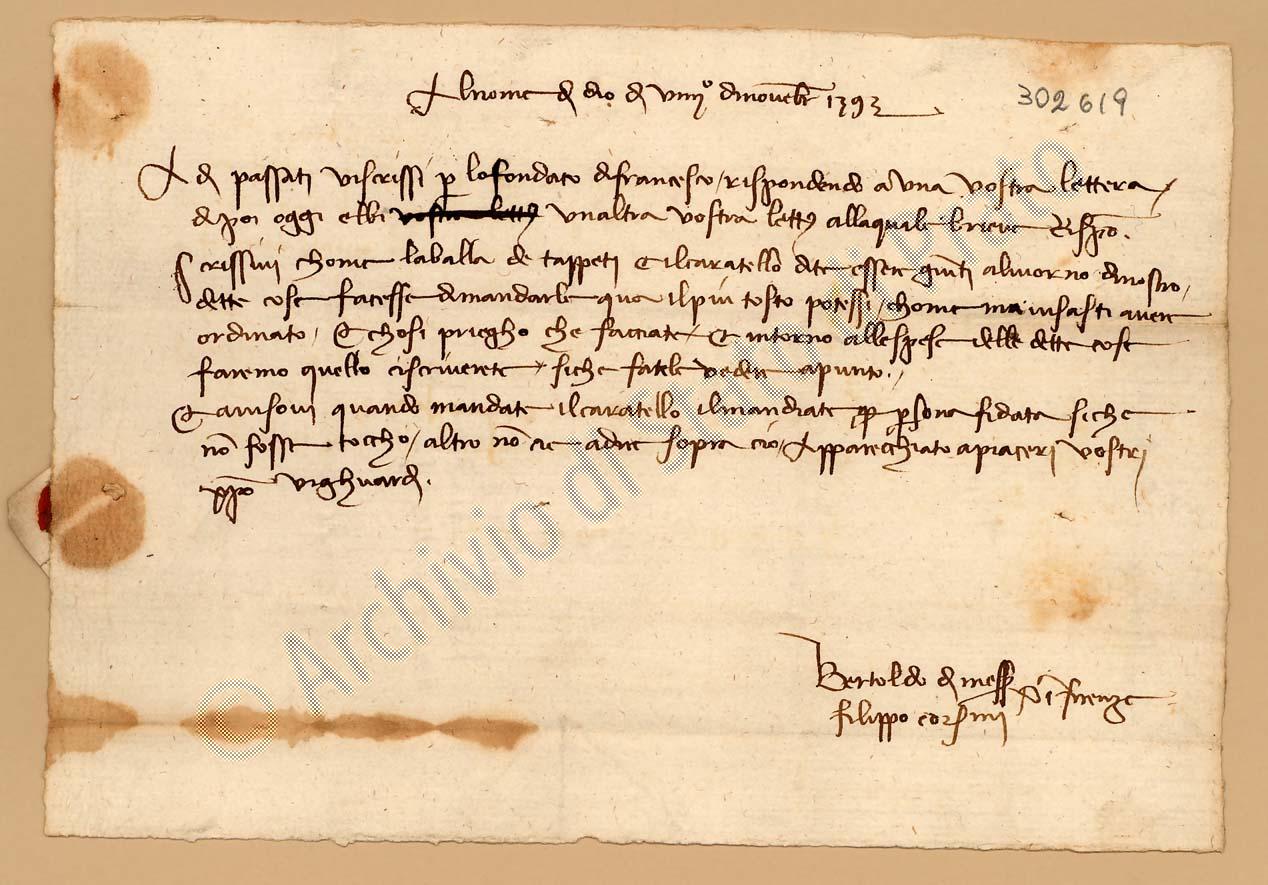 Al nome di dio di viiii° di novebr 1393
302619
A di passati vi scrissi p lo fondaco di francesco / rispondendo a una vostra lettera /
di poi oggi ebbi un altra vostra lett alla quale brieve
Scrissivi chome la balla de tappeti e il caratello dite essere giunti a livorno di nostro /
dette cose facesse di mandarle qua il piu tosto potessi / chome m avisasti avere
ordinato / et chosi priegho che facciate / et intorno alle spese delle dette cose
faremo quello ci scriverete / siche fatele vedere apunto. /
Et avisovi quando mandate il caratello il mandiate p psona fidata siche
no fosse tocho / altro no c e a dire sopra cio / Apparecchiato a piaceri vostri
xpo vi ghuardi.
Bertoldo di mess
filippo corsini
i firenze
© Archivio di Stato di Prato